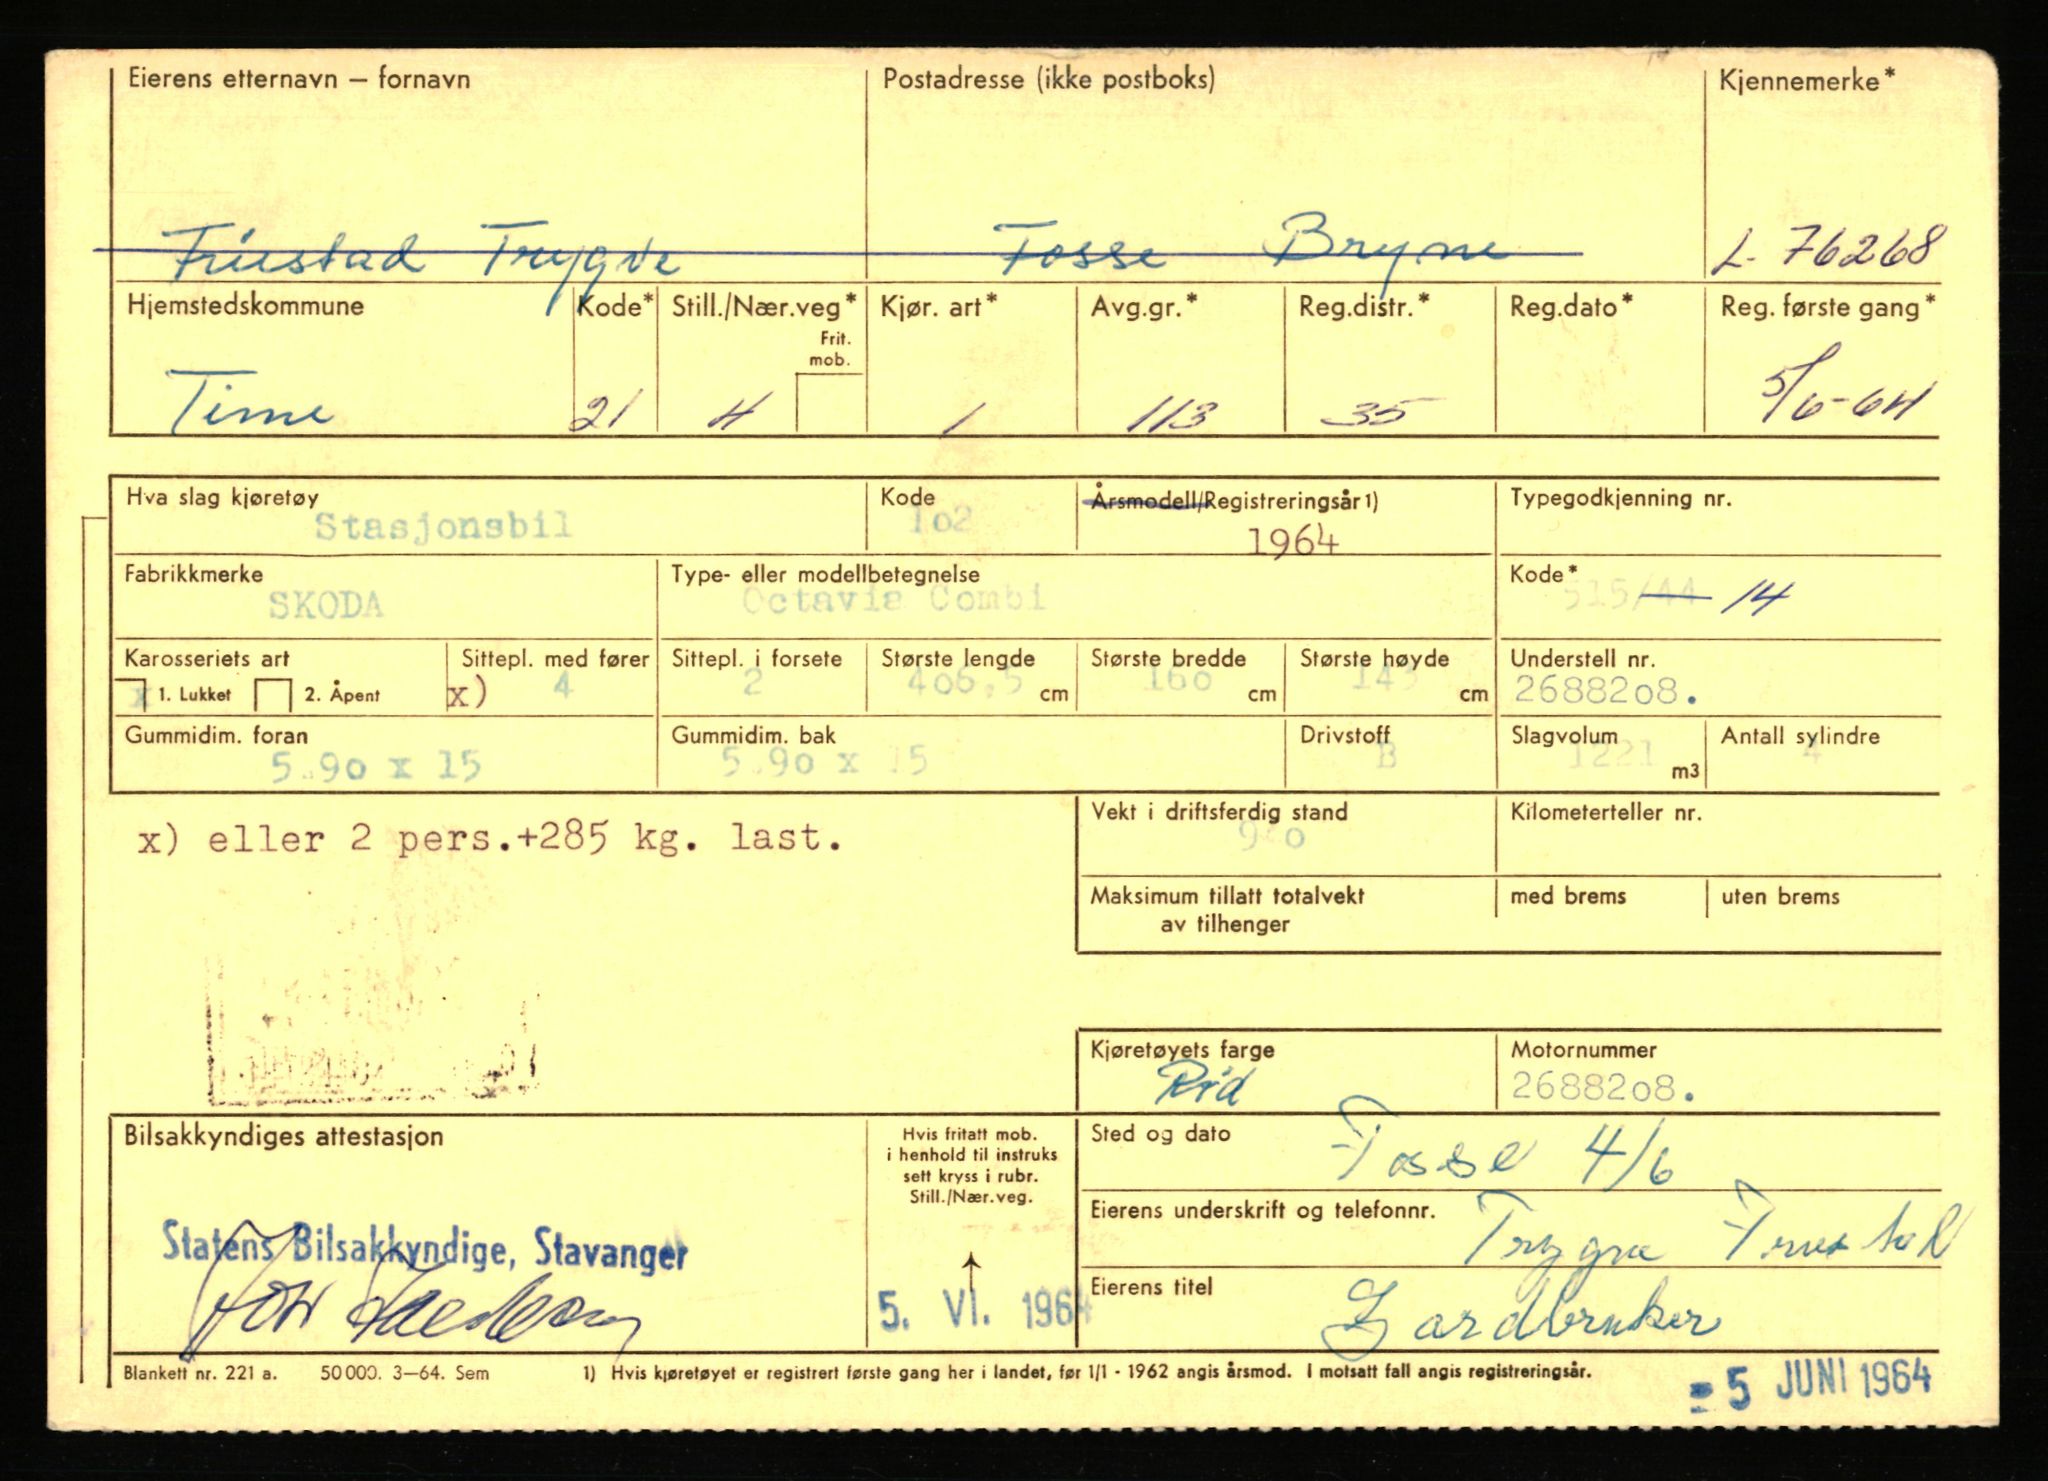 Eierens etternavn – fornavn Postadresse (ikke postboks) Kjennemerke*
Trygve Fosse Bryne L-76268
Hjemstedskommune Kode* Still./Nær.veg* Kjør. art* Avg.gr.* Reg.distr.* Reg.dato* Reg. første gang*
Frit.
mob.
Time 21 4 1 113 35 5/6-64
Hva slag kjøretøy Kode Årsmodell/Registreringsår 1) Typegodkjenning nr.
Stasjonsbil 1o2 1964
Fabrikkmerke Type- eller modellbetegnelse Kode*
SKODA Octavia Combi 515/44 14
Karosseriets art Sittepl. med fører Sittepl. i forsete Største lengde Største bredde Største høyde Understell nr.
x 1. Lukket 2. Åpent x) 4 2 4o6,5 cm 16o cm 143 cm 26882o8.
Gummidim. foran Gummidim. bak Drivstoff Slagvolum Antall sylindre
5.9o x 15 5.9o x 15 B 1221 m3 4
Vekt i driftsferdig stand Kilometerteller nr.
x) eller 2 pers.+285 kg. last.
Maksimum tillatt totalvekt med brems uten brems
av tilhenger
Kjøretøyets farge Motornummer
Rød 26882o8.
Bilsakkyndiges attestasjon Hvis fritatt mob. Sted og dato
i henhold til instruks
sett kryss i rubr.
Still./Nær.veg.
Fosse 4/6
Eierens underskrift og telefonnr.
Trygve
Statens Bilsakkyndige, Stavanger
Eierens titel
5. VI. 1964 Gardbruker
Blankett nr. 221 a. 50 000. 3–64. Sem 1) Hvis kjøretøyet er registrert første gang her i landet, før 1/1 - 1962 angis årsmod. I motsatt fall angis registreringsår.
- 5 JUNI 1964